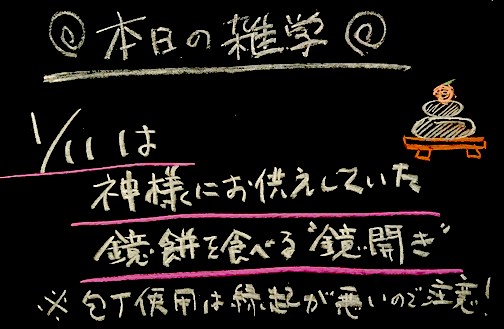 @ 本日の雑学 @
1/11は
神様にお供えしていた
鏡餅を食べる"鏡開き"
※包丁使用は縁起が悪いので注意!